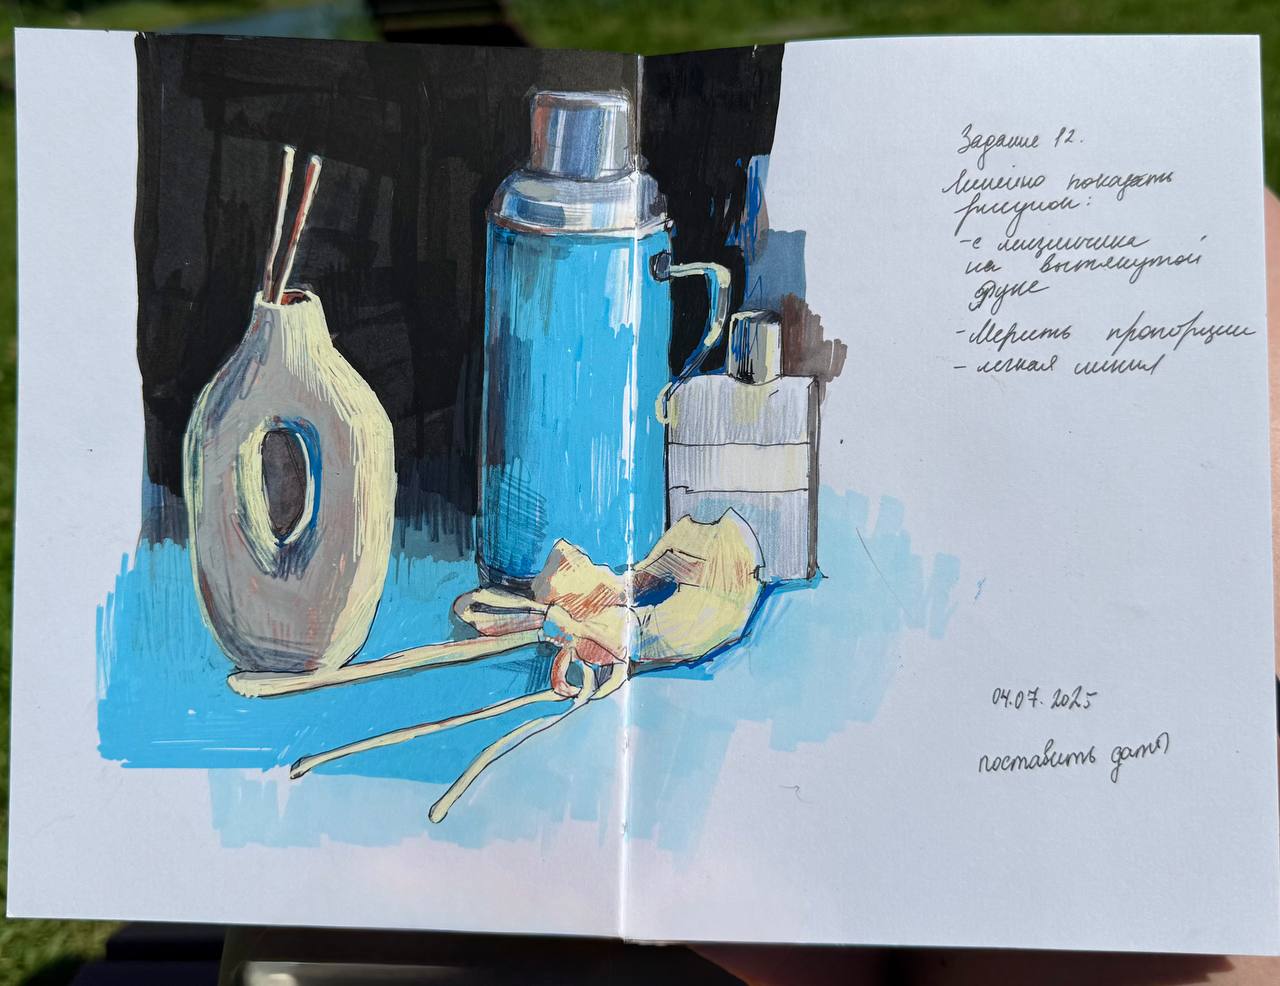 Задание 12.
Линейно показать
рисунок:
- с мизинчика
на вытянутой
руке
- Мерить пропорции
- легкая линия
04.07.2025
поставить даты